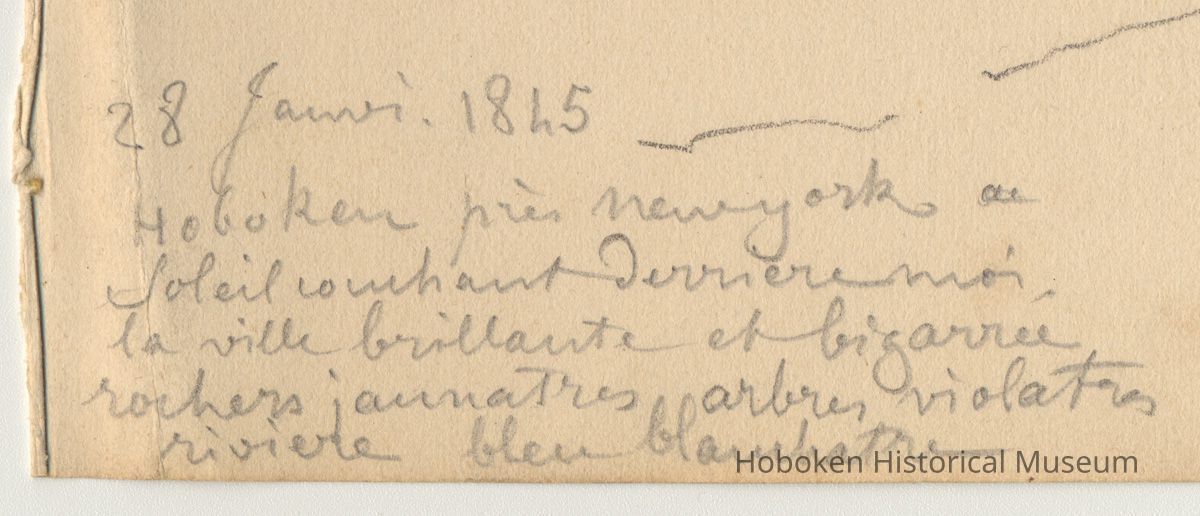 28 Janvi. 1845
Hoboken près newyork au
Soleil couchant Derriere moi.
la ville brillante et bigarrée
rochers jaunatres arbres violatres
riviere bleu blanchatre
Hoboken Historical Museum